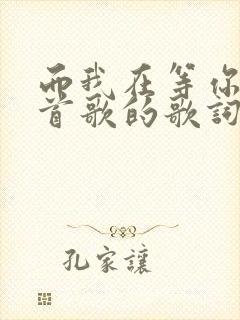 而我在等你
首歌的歌詞
孔家讓